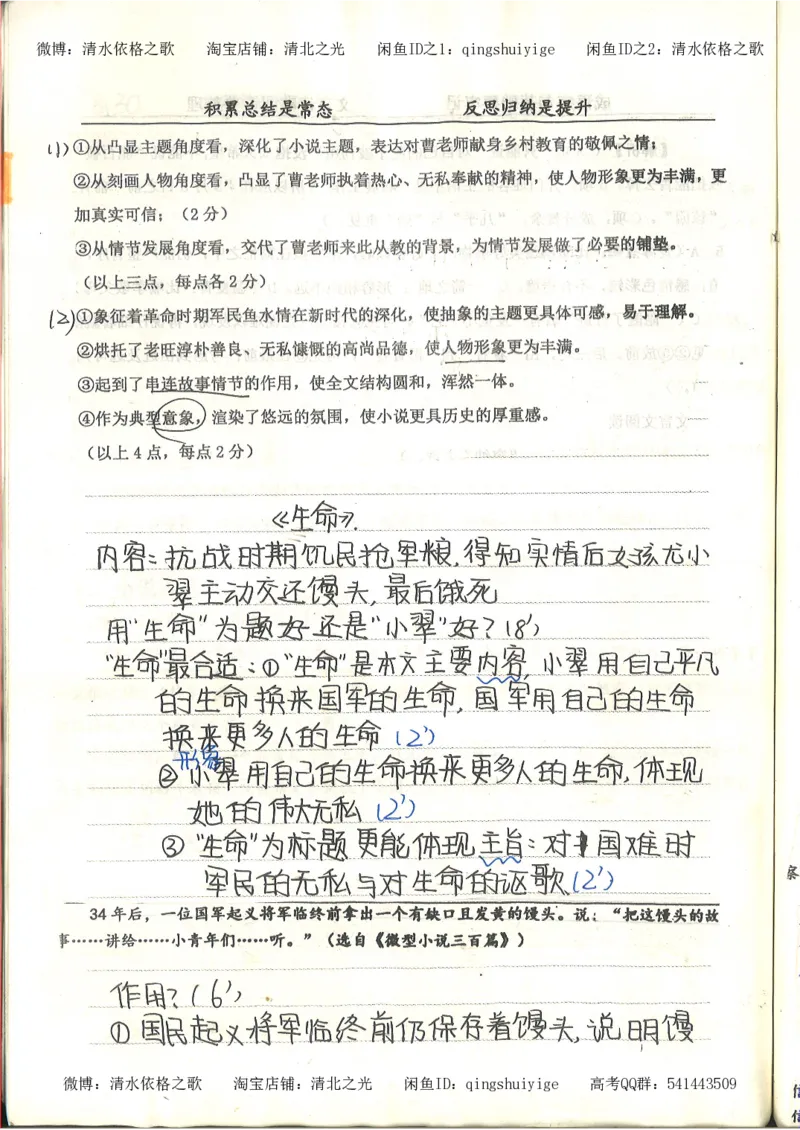 微博：清水依格之歌 淘宝店铺：清北之光 闲鱼ID之1：qingshuiyige 闲鱼ID之2：清水依格之歌
积累总结是常态 反思归纳是提升
(1)①从凸显主题角度看，深化了小说主题，表达对曹老师献身乡村教育的敬佩之情；
②从刻画人物角度看，凸显了曹老师执着热心、无私奉献的精神，使人物形象更为丰满，更
加真实可信；（2分）
③从情节发展角度看，交代了曹老师来此从教的背景，为情节发展做了必要的铺垫。
（以上三点，每点各2分）
(2)①象征着革命时期军民鱼水情在新时代的深化，使抽象的主题更具体可感，易于理解。
②烘托了老旺淳朴善良、无私慷慨的高尚品德，使人物形象更为丰满。
③起到了串连故事情节的作用，使全文结构圆和，浑然一体。
④作为典型意象，渲染了悠远的氛围，使小说更具历史的厚重感。
（以上4点，每点2分）
《生命》.
内容：抗战时期饥民抢军粮，得知实情后女孩尤小
翠主动交还馒头，最后饿死
用“生命”为题好还是“小翠”好？（8'）
“生命”最合适：①“生命”是本文主要内容，小翠用自己平凡
的生命换来国军的生命，国军用自己的生命
换来更多人的生命（2'）
形象
②小翠用自己的生命换来更多人的生命，体现
她的伟大无私（2'）
③“生命”为标题更能体现主旨：对国难时
军民的无私与对生命的讴歌（2'）
34年后，一位国军起义将军临终前拿出一个有缺口且发黄的馒头。说：“把这馒头的故
事……讲给……小青年们……听。”（选自《微型小说三百篇》）
作用？（6'）
①国民起义将军临终前仍保存着馒头，说明馒
微博：清水依格之歌 淘宝店铺：清北之光 闲鱼ID：qingshuiyige 高考QQ群：541443509